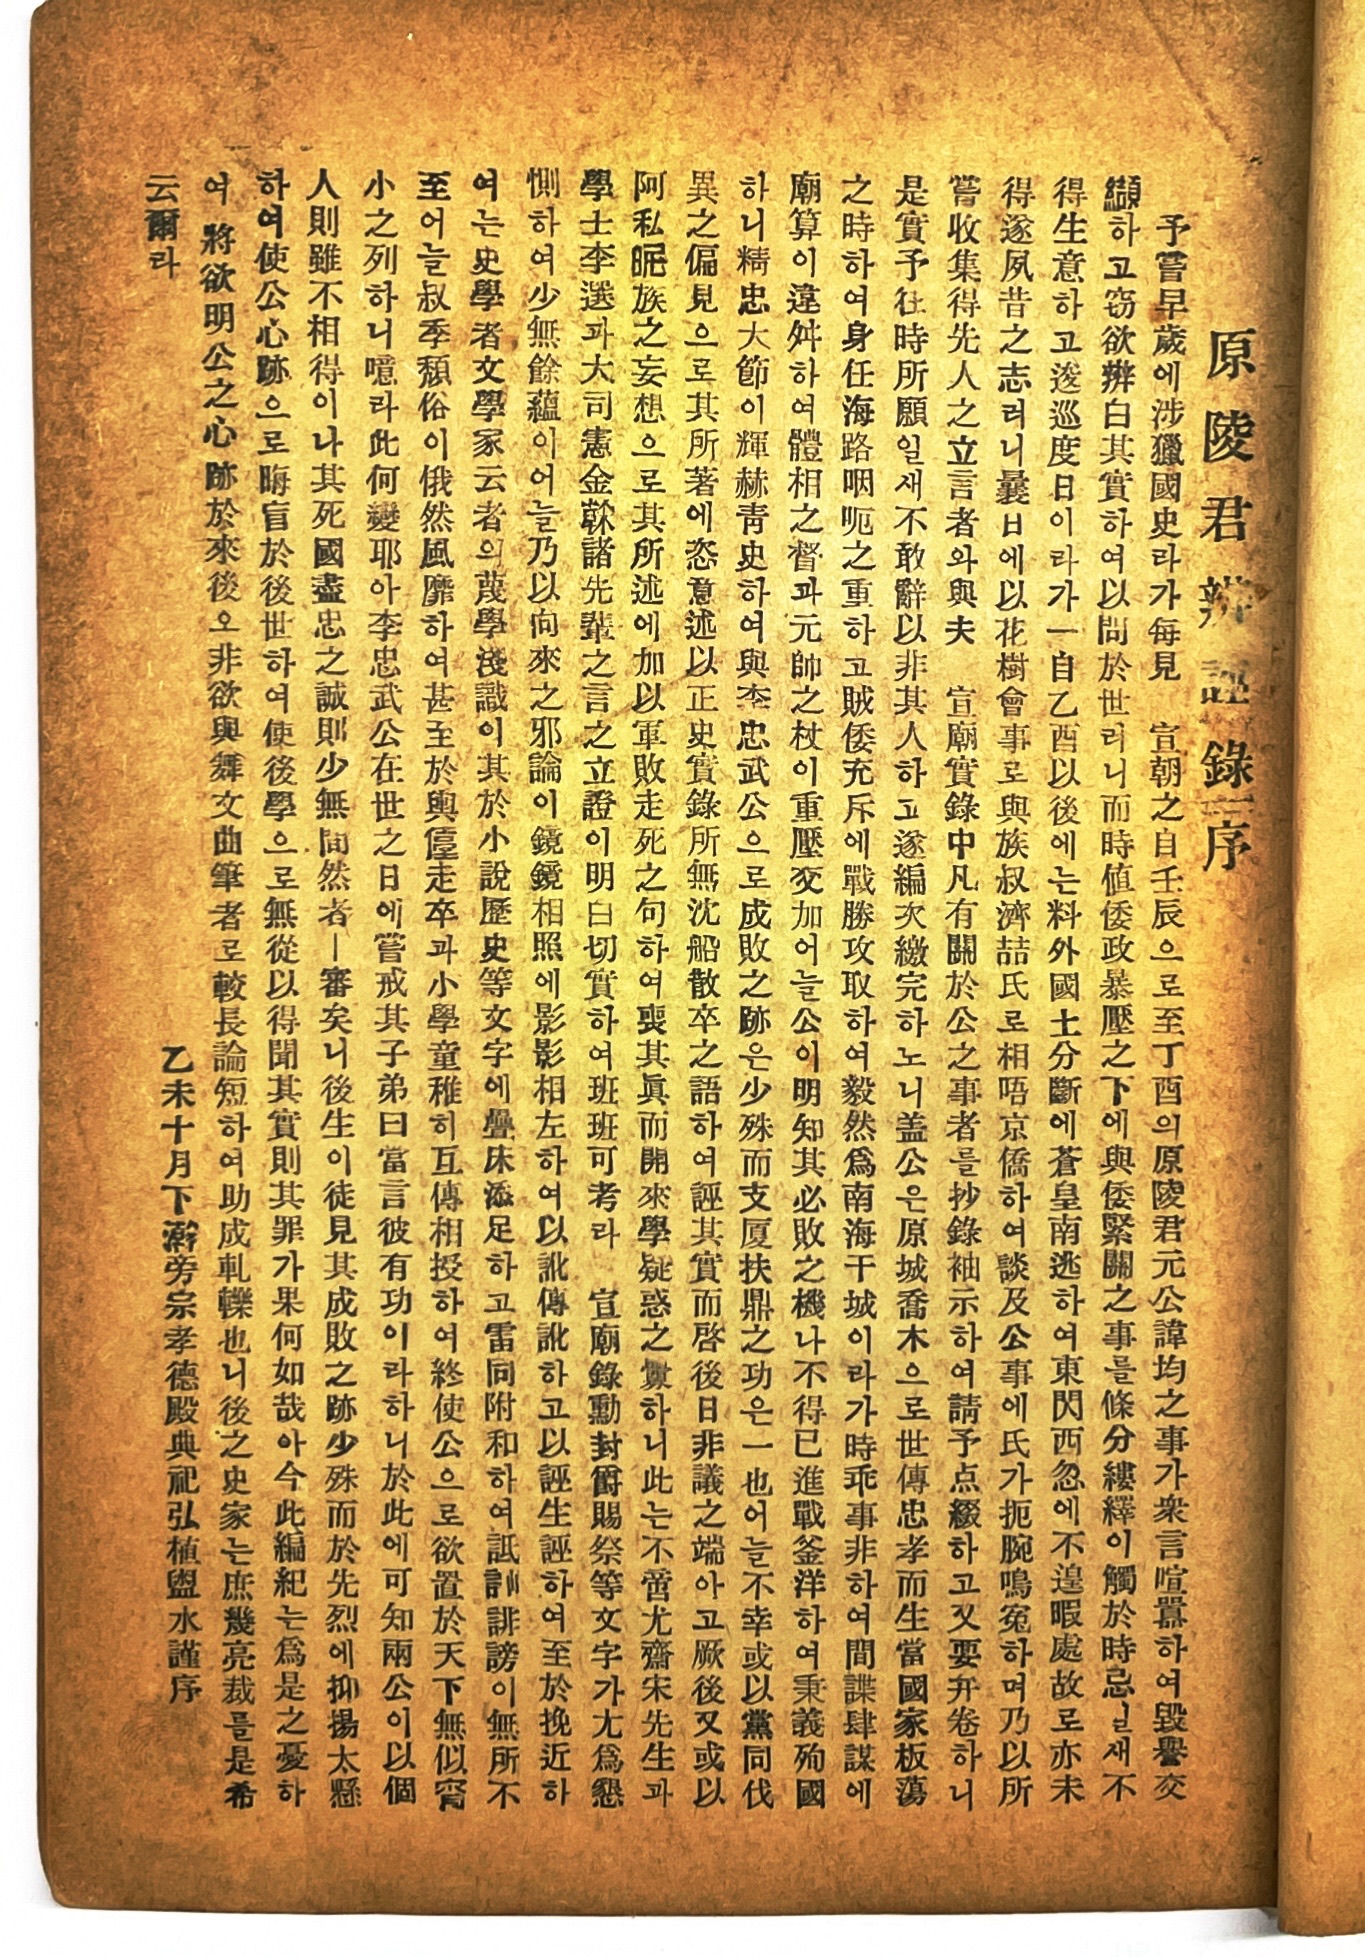 原陵君辨誣錄一序
予嘗早歲에涉獵國史라가每見 宣朝之自壬辰으로至丁酉의原陵君元公諱均之事가衆言喧囂하여毁譽交
纈하고窃欲辨白其實하여以問於世러니而時値倭政暴壓之下에與倭緊關之事를條分縷繹이觸於時忌일새不
得生意하고逡巡度日이라가一自乙酉以後에는料外國土分斷에蒼皇南逃하여東閃西忽에不遑暇處故로亦未
得遂夙昔之志러니曩日에以花樹會事로與族叔濟喆氏로相唔京僑하여談及公事에氏가扼腕鳴寃하며乃以所
嘗收集得先人之立言者와與夫 宣廟實錄中凡有關於公之事者를抄錄袖示하여請予点綴하고又要弁卷하니
是實予往時所願일새不敢辭以非其人하고遂編次繳完하노니盖公은原城喬木으로世傳忠孝而生當國家板蕩
之時하여身任海路咽呃之重하고賊倭充斥에戰勝攻取하여毅然爲南海干城이라가時乖事非하여間諜肆謀에
廟算이違舛하여體相之督과元帥之杖이重壓交加어늘公이明知其必敗之機나不得已進戰釜洋하여秉義殉國
하니精忠大節이輝赫靑史하여與李忠武公으로成敗之跡은少殊而支厦扶鼎之功은一也어늘不幸或以黨同伐
異之偏見으로其所著에恣意述以正史實錄所無沈船散卒之語하여誣其實而啓後日非議之端아고厥後又或以
阿私昵族之妄想으로其所述에加以軍敗走死之句하여喪其眞而開來學疑惑之竇하니此는不啻尤齋宋先生과
學士李選과大司憲金𩏩諸先輩之言之立證이明白切實하여班班可考라 宣廟錄勳封爵賜祭等文字가尤爲懇
惻하여少無餘蘊이어늘乃以向來之邪論이鏡鏡相照에影影相左하여以訛傳訛하고以誣生誣하여至於挽近하
여는史學者文學家云者의蔑學淺識이其於小說歷史等文字에疊床添足하고雷同附和하여詆訕誹謗이無所不
至어늘叔季頹俗이俄然風靡하여甚至於輿儓走卒과小學童稚히互傳相授하여終使公으로欲置於天下無似宵
小之列하니噫라此何變耶아李忠武公在世之日에嘗戒其子弟曰當言彼有功이라하니於此에可知兩公이以個
人則雖不相得이나其死國盡忠之誠則少無間然者ㅣ審矣니後生이徒見其成敗之跡少殊而於先烈에抑揚太懸
하여使公心跡으로晦盲於後世하여使後學으로無從以得聞其實則其罪가果何如哉아今此編紀는爲是之憂하
여 將欲明公之心跡於來後오非欲與舞文曲筆者로較長論短하여助成軋轢也니後之史家는庶幾亮裁를是希
云爾라
乙未十月下澣旁宗孝德殿典祀弘植盥水謹序